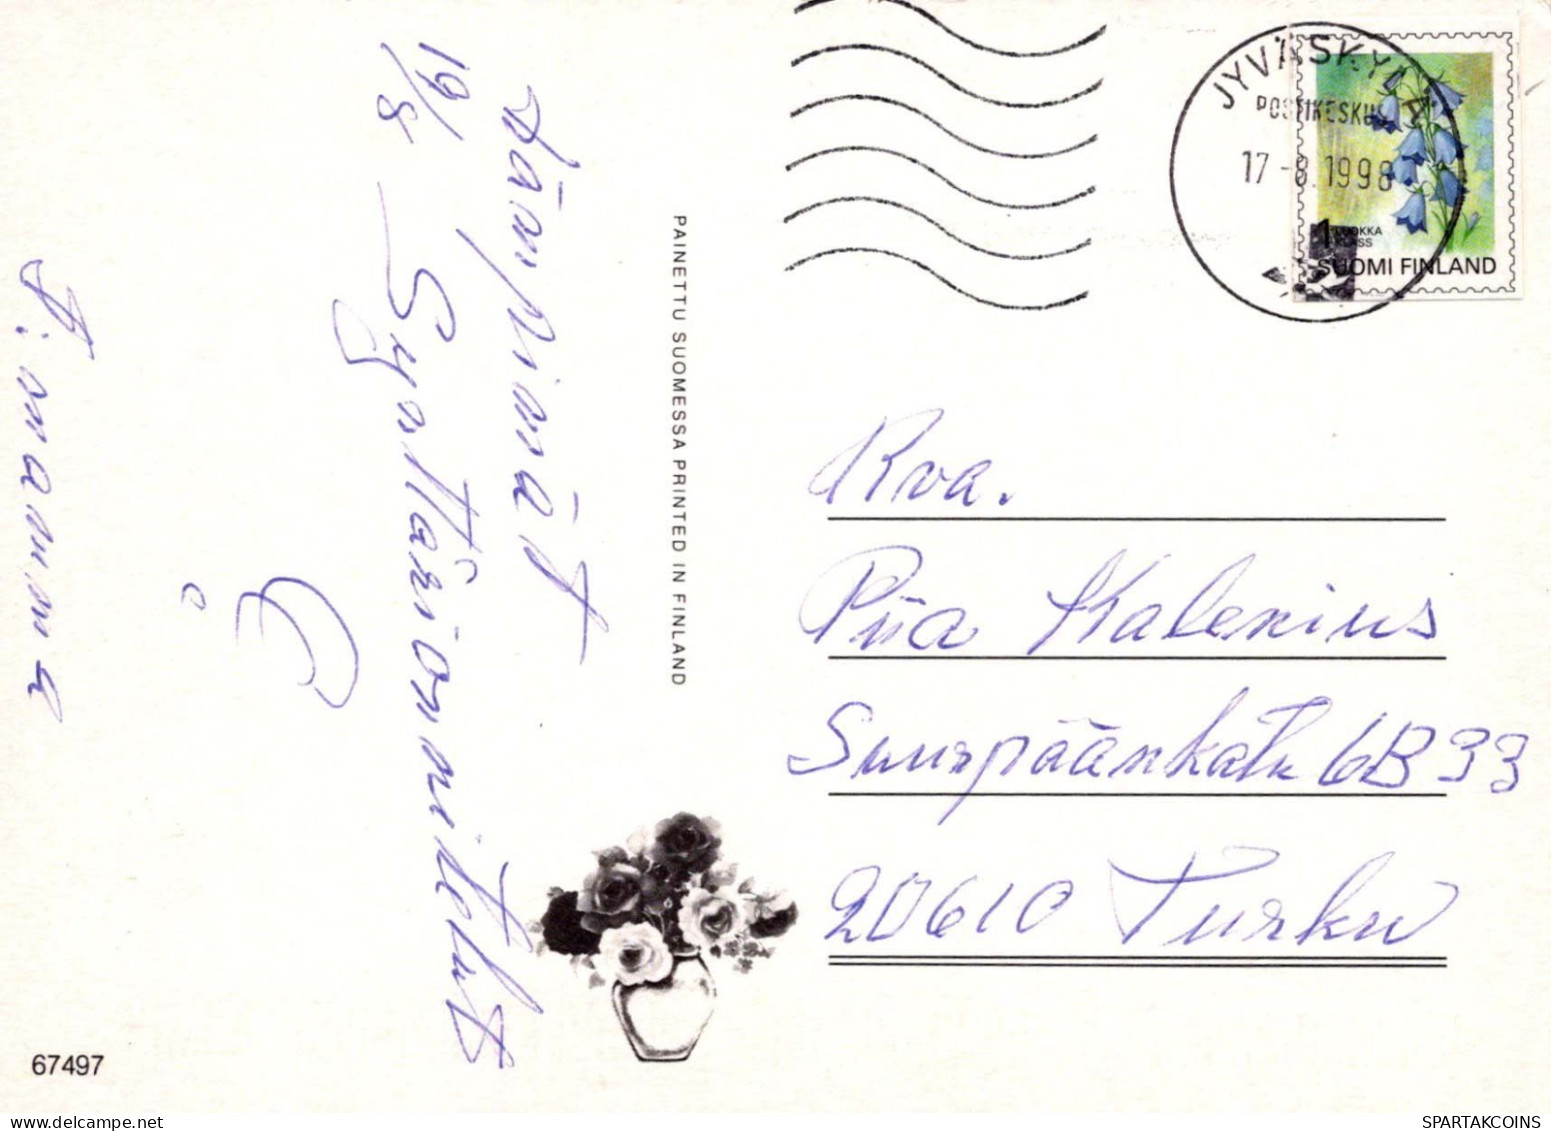 19/8
Lämpimät
Synttärionnittelut
T. mamma
PAINETTU SUOMESSA PRINTED IN FINLAND
JYVÄSKYLÄ
POSTIKESKUS
17-8.1998
1 LUOKKA
KLASS
SUOMI FINLAND
Rva.
Piia Kalenius
Suurpäänkatu 6B 33
20610 Turku
67497
SPARTAKCOINS